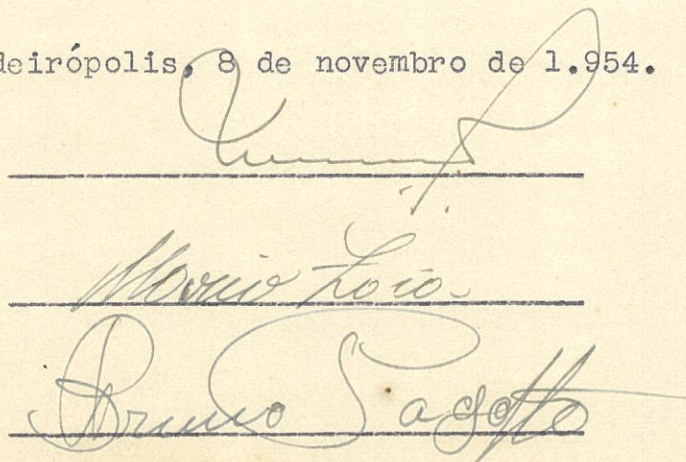 deirópolis, 8 de novembro de 1.954.
Mario Zoio
Bruno Pagotto